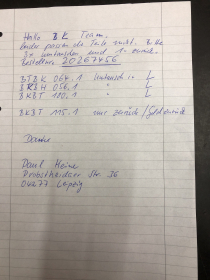 Hallo BK Team.
leider passen die Teile nicht. Bitte
3x umtauschen und 1x zurück.
Bestellnr. 20267456
BTBK 064.1 Umtausch in L
BKBH 056.1 " L
BKBT 180.1 " L
BKBT 115.1 nur zurück / Geld zurück
Danke
Paul Heine
Probstheidaer Str. 36
04277 Leipzig